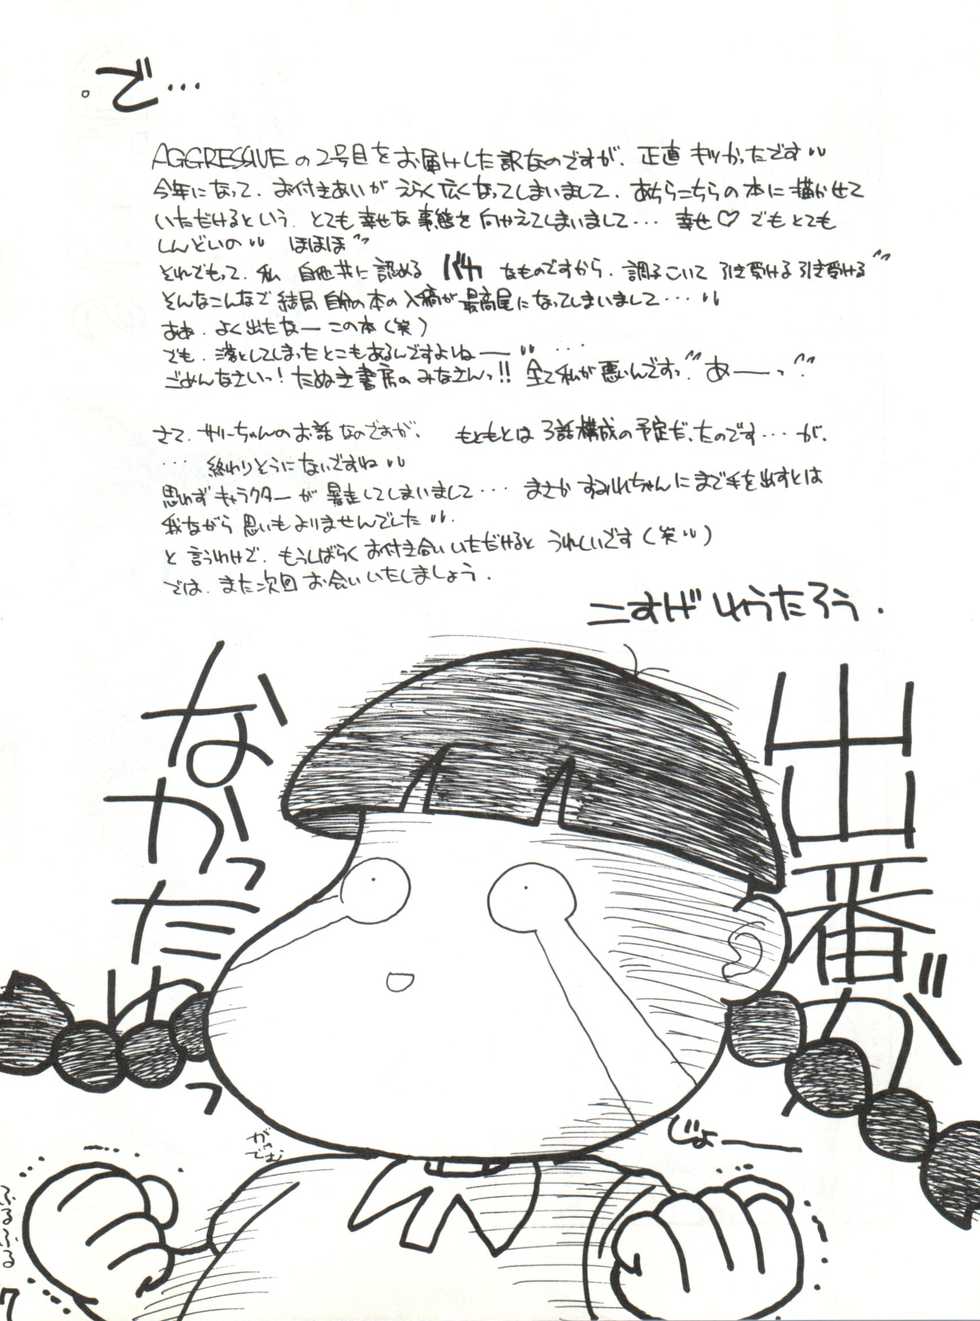 。で…
AGGRESSIVEの2号目をお届けした訳なのですが、正直キツかったです
今年になって、お付きあいがえらく広くなってしまいまして、あちらこちらの本に描かせて
いただけるという、とても幸せな事態をむかえてしまいまして… 幸せ♡でもとても
しんどいの ほほほ
それでもって、私 自他共に認める バカ なものですから、調子こいて 引き受ける引き受ける
そんなこんなで結局自分の本の入稿が最高尾になってしまいまして…
ああ、よく出たなーこの本(笑)
でも、落としてしまったとこもあるんですよねー …
ごめんなさいっ!たぬき書房のみなさんっ!!全て私が悪いんですっ あーーっ
さて、サリーちゃんのお話なのですが、もともとは3話構成の予定だったのです…が、
… 終わりそうにないですね
思わずキャラクターが暴走してしまいまして… まさかすみれちゃんにまで手を出すとは
我ながら思いもよりませんでした
と言うわけで、もうしばらくお付き合いいただけるとうれしいです(笑)
では、また次回お会いいたしましょう。
二すげ しゅうたろう.
出番が
なかったゆっ
じょーー
ぷるぷる
7